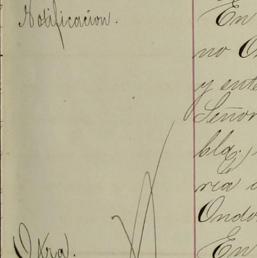 Notificacion.
En
no O
y ente
Señor
bla,
ria
Ondo
Otra.
En